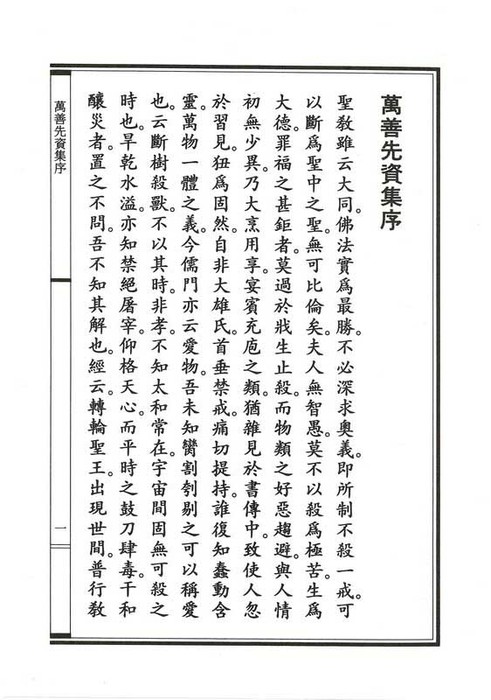 萬善先資集序
聖敎雖云大同。佛法實爲最勝。不必深求奧義。即所制不殺一戒。可
以斷爲聖中之聖。無可比倫矣。夫人無智愚。莫不以殺爲極苦。生爲
大德。罪福之甚鉅者。莫過於戕生止殺。而物類之好惡趨避。與人情
初無少異。乃大烹用享。宴賓充庖之類。猶雜見於書傳中。致使人忽
於習見。狃爲固然。自非大雄氏。首垂禁戒。痛切提持。誰復知蠢動含
靈。萬物一體之義。今儒門亦云愛物。吾未知臠割刳剔之可以稱愛
也。云斷樹殺獸。不以其時。非孝。不知太和常在。宇宙間固無可殺之
時也。旱乾水溢。亦知禁絕屠宰。仰格天心。而平時之鼓刀肆毒。干和
釀災者。置之不問。吾不知其解也。經云。轉輪聖王。出現世間。普行敎
萬善先資集序
一